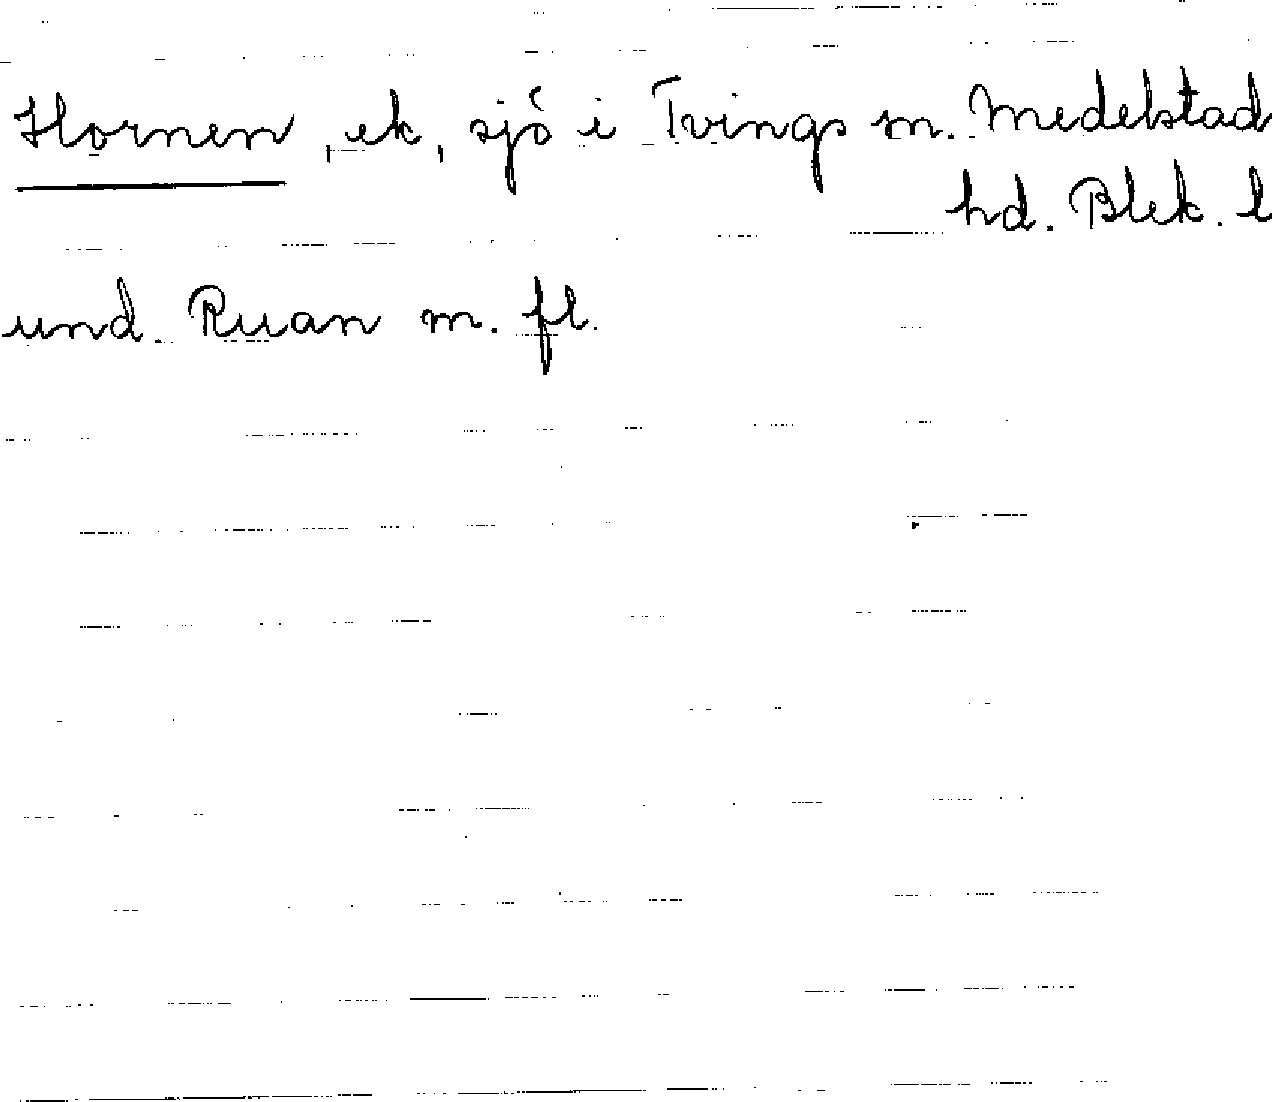 Hornen, ek, sjö i Tvings sn. Medelstad
hd. Blek. l
und. Ruan m. fl.